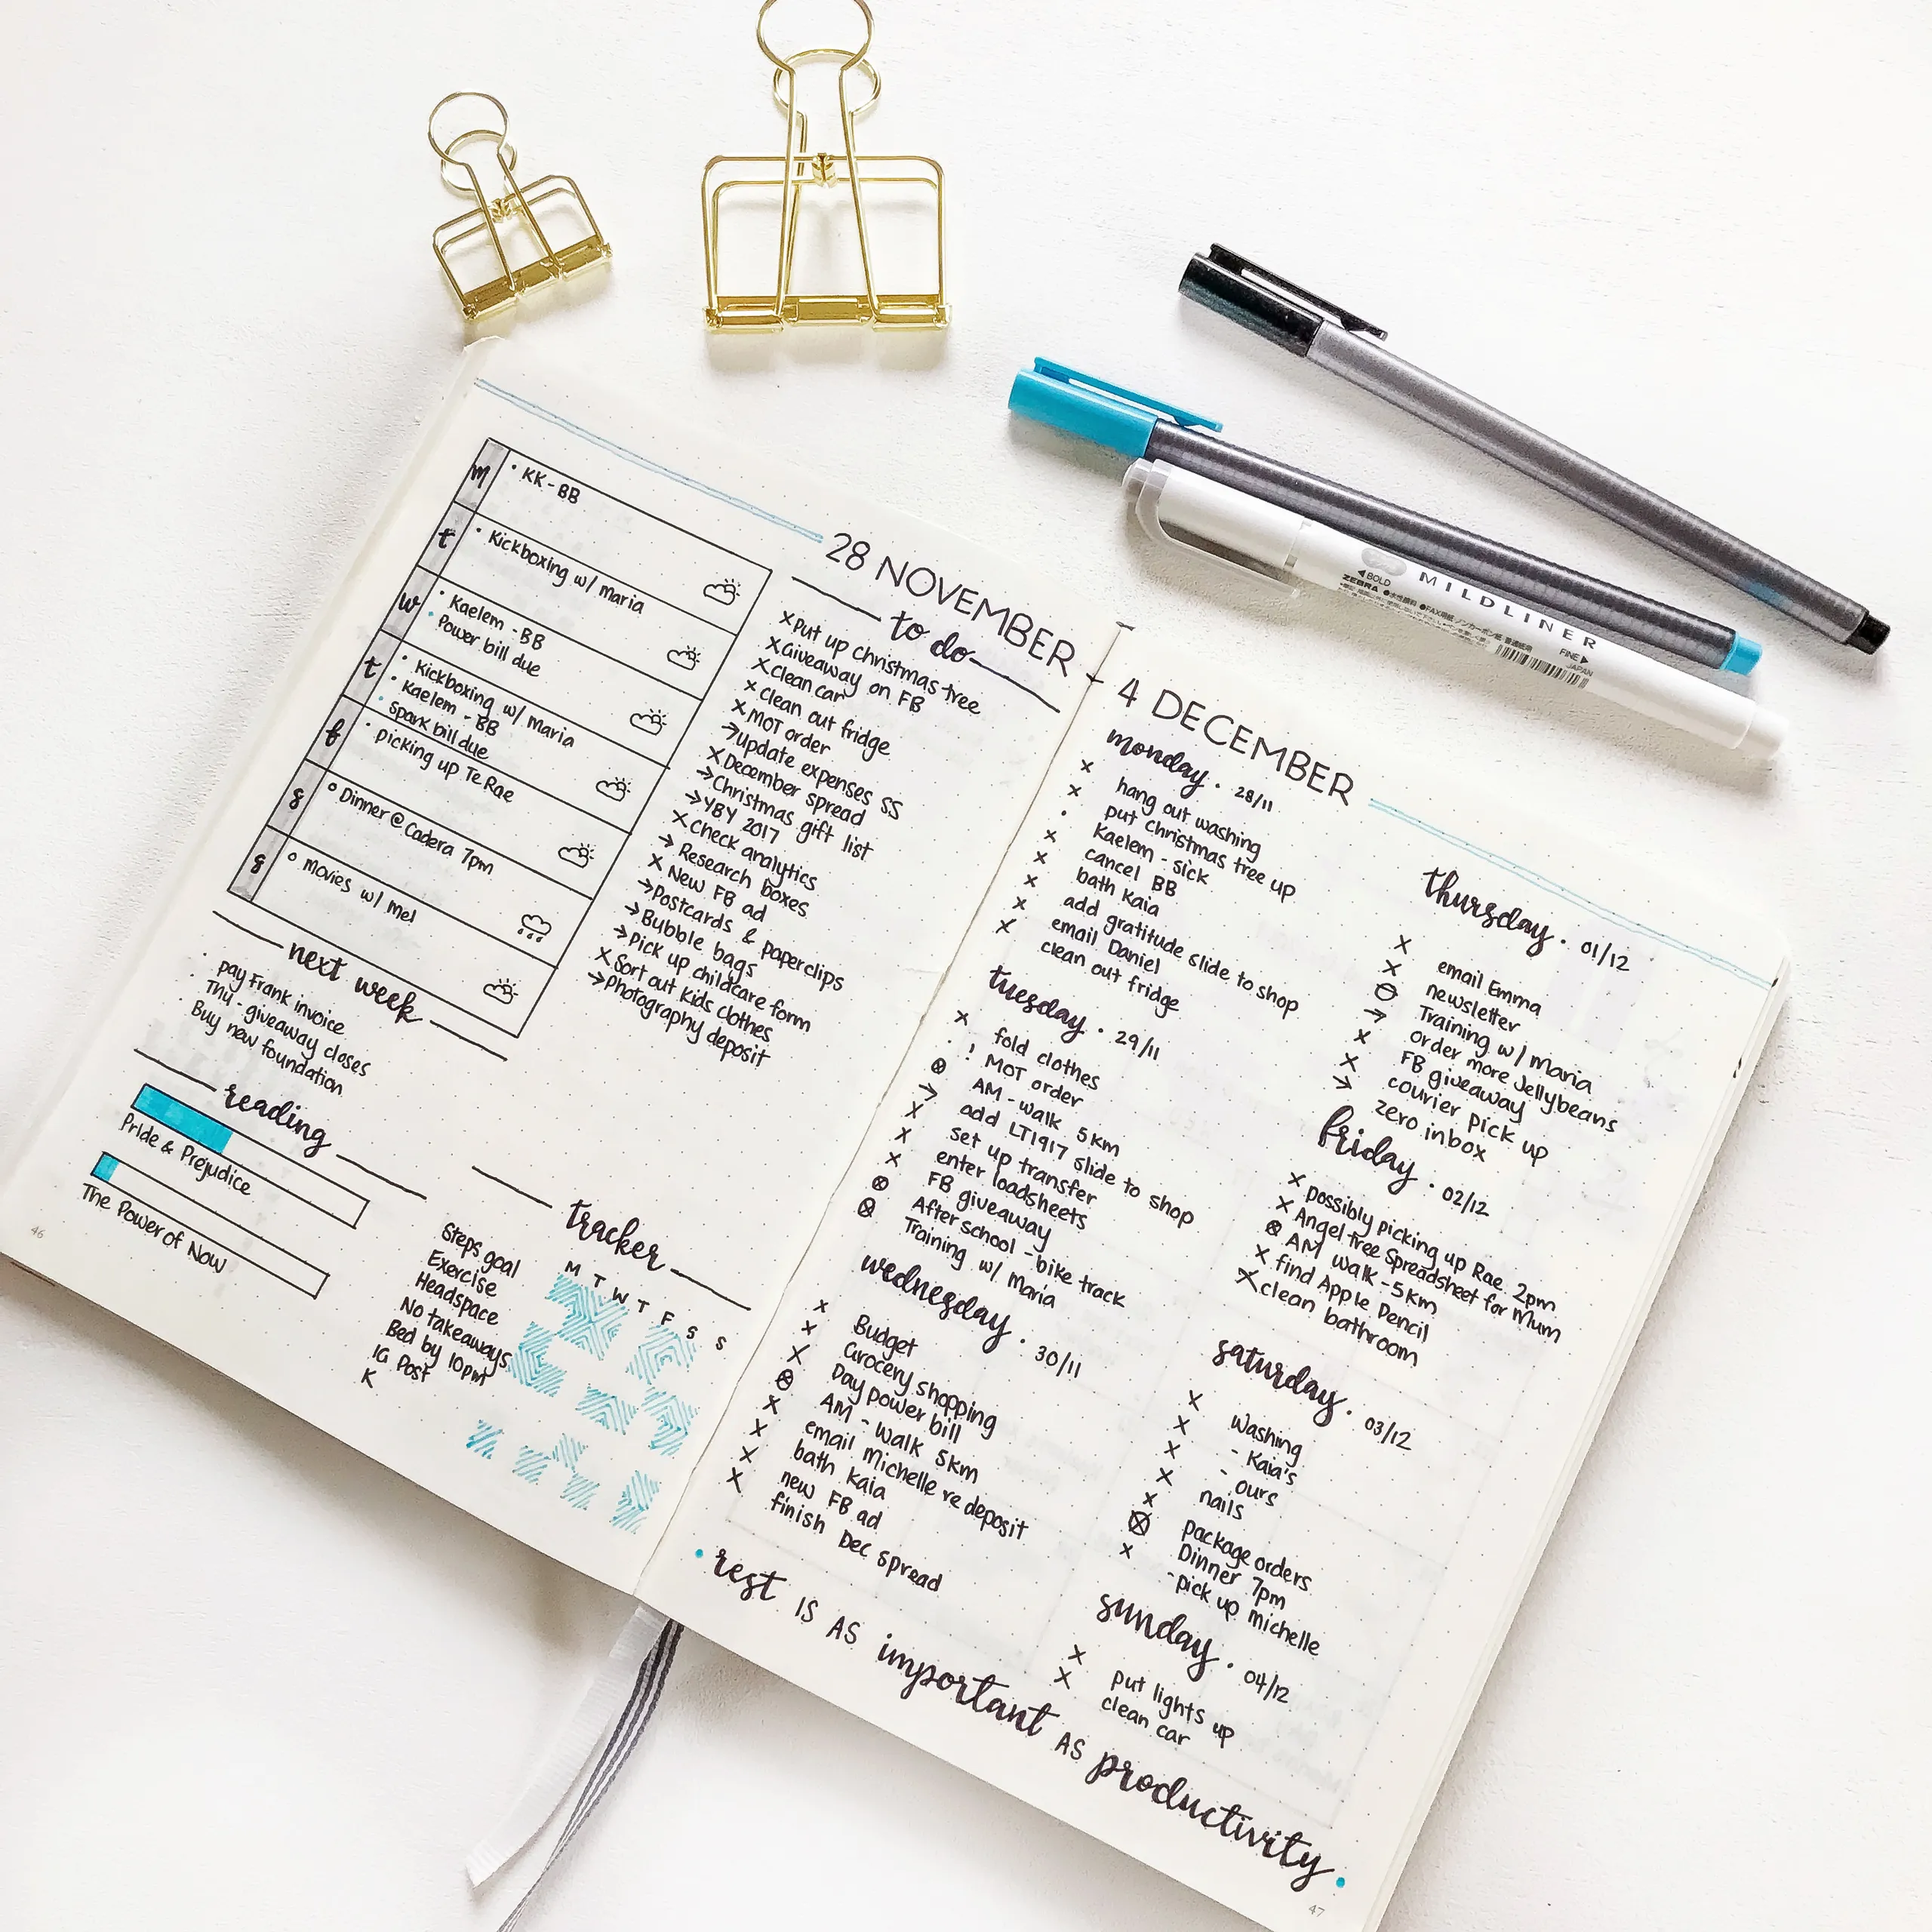 28 NOVEMBER -
m
• KK - BB
t
• Kickboxing w/ maria
w
• Kaelem - BB
• Power bill due
t
• Kickboxing w/ maria
• Kaelem - BB
• Spark bill due
f
• picking up Te Rae
s
o Dinner @ Cadera 7pm
s
o movies w/ mel
to do
x Put up christmas tree
x Giveaway on FB
x Clean car
x Clean out fridge
x MOT order
→ Update expenses SS
x December spread
→ Christmas gift list
→ YBY 2017
x Check analytics
→ Research boxes
x New FB ad
→ Postcards & paperclips
→ Bubble bags
→ Pick up childcare form
x Sort out kids clothes
→ photography deposit
next week
• pay Frank invoice
• Thu - giveaway closes
• Buy new foundation
reading
Pride & Prejudice
The Power of Now
tracker
M T W T F S S
Steps goal
Exercise
Headspace
No takeaways
Bed by 10pm
IG Post
K
46
4 DECEMBER
monday • 28/11
x hang out washing
x put christmas tree up
• Kaelem - sick
x cancel BB
x bath Kaia
x add gratitude slide to shop
x email Daniel
x clean out fridge
tuesday • 29/11
x fold clothes
• ! MOT order
⊗ AM - walk 5km
→ add LT1917 slide to shop
x set up transfer
x enter loadsheets
x FB giveaway
⊗ After school - bike track
⊗ Training w/ maria
wednesday • 30/11
x Budget
x Grocery shopping
x Pay power bill
⊗ AM - walk 5km
x email Michelle re deposit
x bath Kaia
x new FB ad
x finish Dec spread
thursday • 01/12
x email Emma
x newsletter
⊖ Training w/ maria
→ order more Jellybeans
x FB giveaway
x courier pick up
→ zero inbox
friday • 02/12
x possibly picking up Rae 2pm
x Angel tree spreadsheet for mum
⊗ AM walk - 5km
x find Apple Pencil
x clean bathroom
saturday • 03/12
x washing
x - Kaia's
x - ours
x nails
x package orders
⊗ Dinner 7pm
x - pick up michelle
sunday • 04/12
x put lights up
x clean car
• rest IS AS important AS productivity •
47
◀BOLD
ZEBRA
MILDLINER
FINE▶
JAPAN